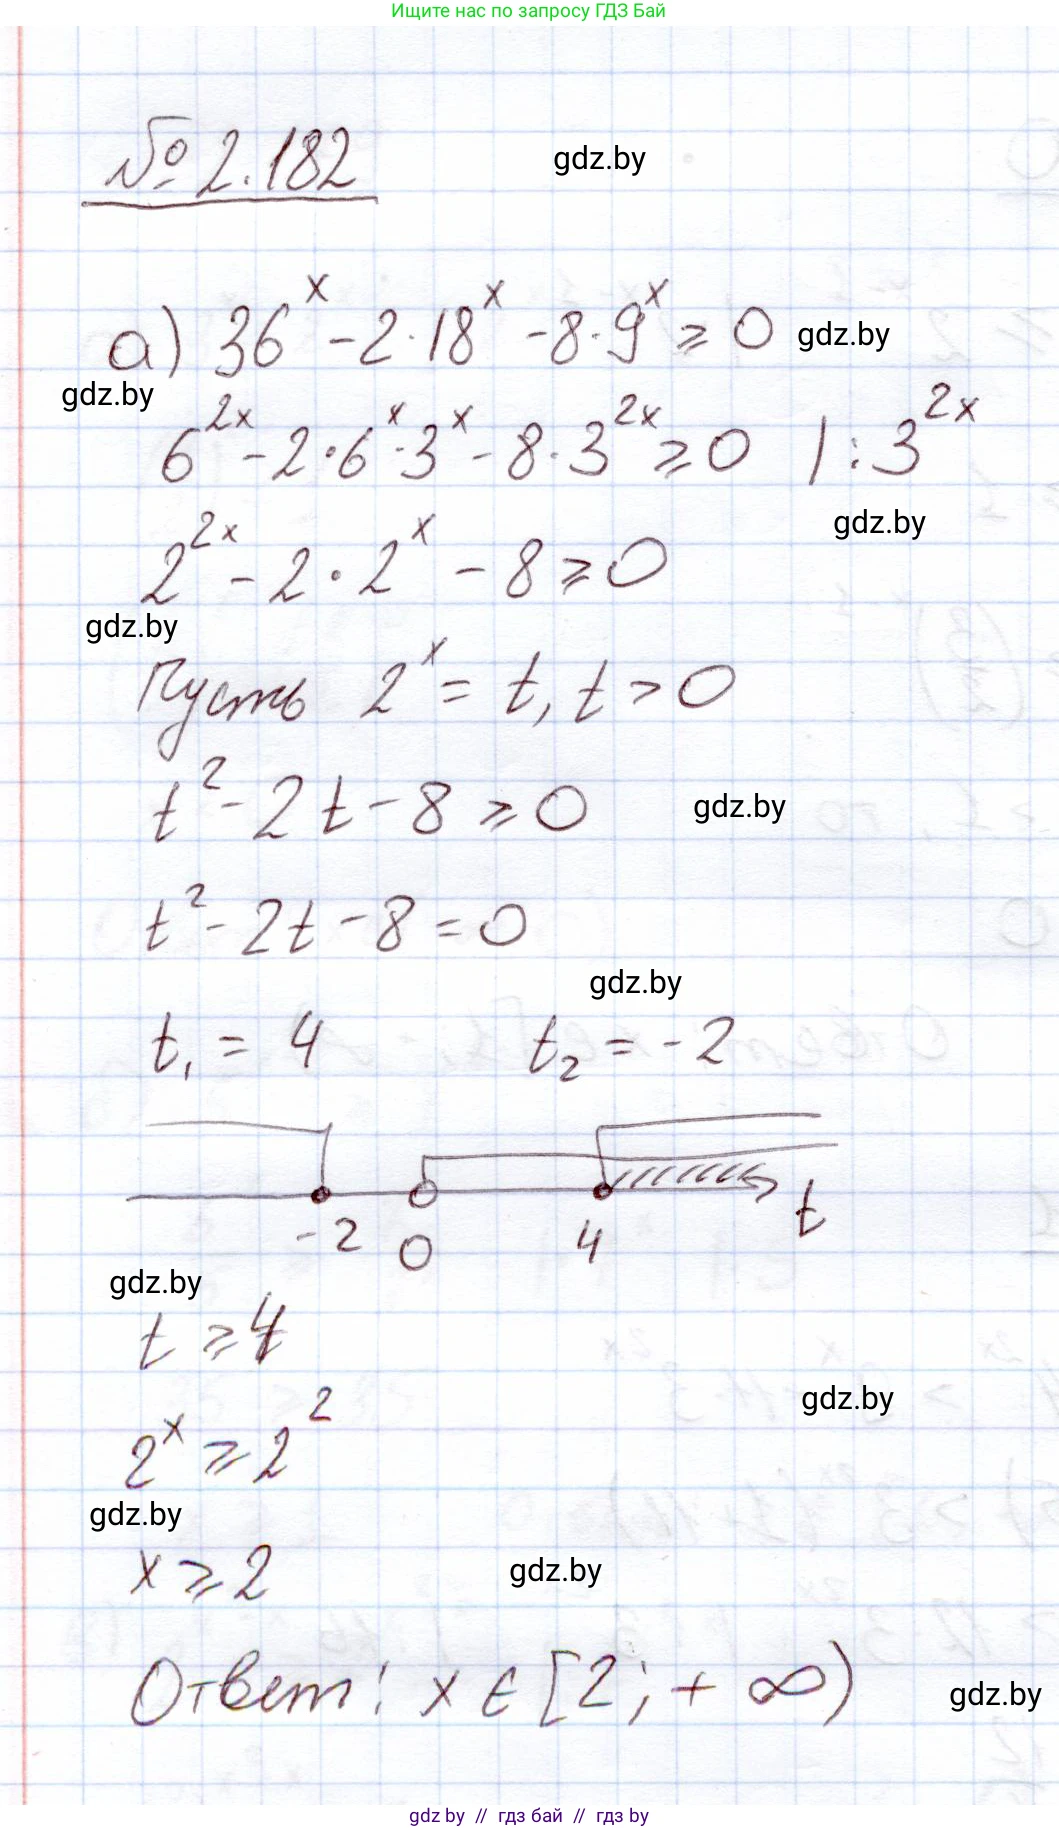 Ищите нас по запросу ГДЗ Бай
№ 2.182
gdz.by
а) 36^x - 2·18^x - 8·9^x ⩾ 0
gdz.by
gdz.by
6^{2x} - 2·6^x·3^x - 8·3^{2x} ⩾ 0 | : 3^{2x}
gdz.by
2^{2x} - 2·2^x - 8 ⩾ 0
gdz.by
Пусть 2^x = t, t > 0
t^2 - 2t - 8 ⩾ 0
gdz.by
t^2 - 2t - 8 = 0
gdz.by
t_1 = 4 t_2 = -2
-2 0 4 t
gdz.by
t ⩾ 4
gdz.by
2^x ⩾ 2^2
gdz.by
x ⩾ 2
gdz.by
Ответ: x ∈ [2; +∞)
gdz.by
gdz.by // гдз бай // гдз by